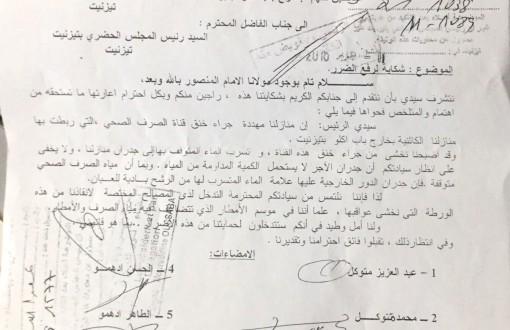 تيزنيت
الى جناب الفاضل المحترم :
السيد رئيس المجلس الحضري بتيزنيت
تيزنيت
الموضوع : شكاية لرفع الضرر.
ســــلام تام بوجود مولانا الامام المنصور بالله وبعد،
نتشرف سيدي بأن نتقدم إلى جنابكم الكريم بشكايتنا هذه ، راجين منكم وبكل احترام اعارتها ما تستحقه من
اهتمام والمتلخص فحواها فيما يلي :
سيدي الرئيس: إن منازلنا مهددة جراء خنق قناة الصرف الصحي ،التي ربطت بها
منازلنا الكائنية بخارج باب اكلو بتيزنيت .
وقد اصبحنا نخشى من جراء خنق هذه القناة ، و تسرب الماء المتوقف بهاإلى جدران منازلنا ، ولا يخفى
على انظار سيادتكم أن جدران الأجر لا يستحمل الكمية المداومة من المياه . وبما أن مياه الصرف الصحي
متوقفة فإن جدران الدور الخارجية عليها علامة الماء المتسرب لها من الرشح بادية للعيان.
لذا فإننا نلتمس من سيادتكم المحترمة التدخل لدى المصالح المختصة لانقاذنا من هذه
الورطة التي نخشى عواقبها ، علما أننا في موسم الأمطار الذي مياه الصرف والأمطار
ولنا أمل وطيد في أنكم ستتدخلون لحمايتنا من هذه بما هو
وفي انتظارذلك ، تقبلوا فائق احترامنا وتقديرنا .
الامضاءات:
1 – عبد العزيز متوكل
4 – الحسن ادهمو
2 – محمد متوكل
5 – الطاهر ادهمو